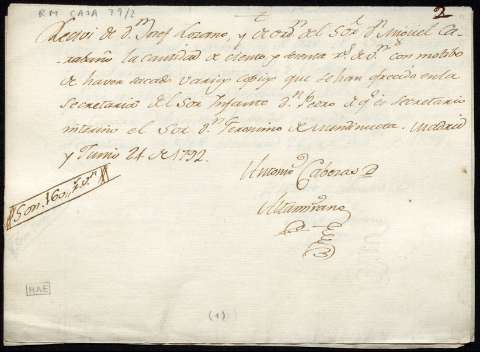 RM CAJA 79/2
2
Recivi de Dn. Josef Lozano, y de ordn. del Sor. Dn. Miguel Ca-
rabaño la cantidad de ciento, y sesenta rs. de vn. con motibo
de haver sacado varias copias que se han ofrecido en la
Secretaria del Sor. Infante Dn. Pedro de qe. es secretario
interino el Sor. Dn. Geronimo de Mendinueta. Madrid
y Junio 24 de 1792.
Antonio Caberas
Altamirano
Son..160,, rs. vn.
MAE
(1)